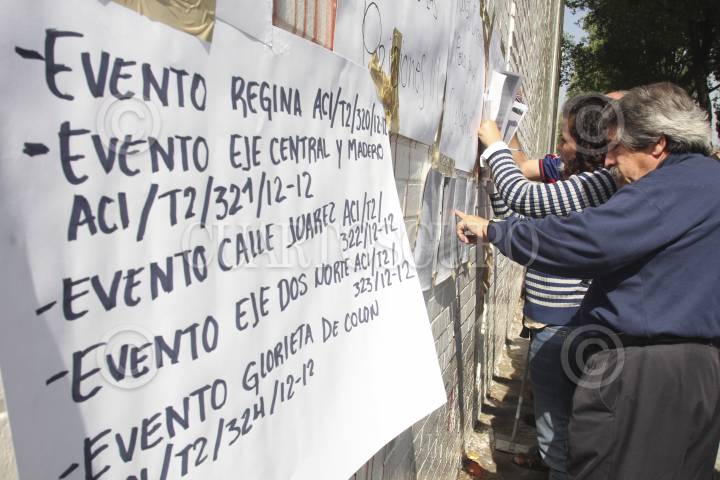 - EVENTO REGINA ACI/T2/320/12-12
- EVENTO EJE CENTRAL Y MADERO
ACI/T2/321/12-12
- EVENTO CALLE JUAREZ ACI/T2/
322/12-12
- EVENTO EJE DOS NORTE ACI/T2/
323/12-12
- EVENTO GLORIETA DE COLON
ACI/T2/324/12-12
CUARTOSCURO